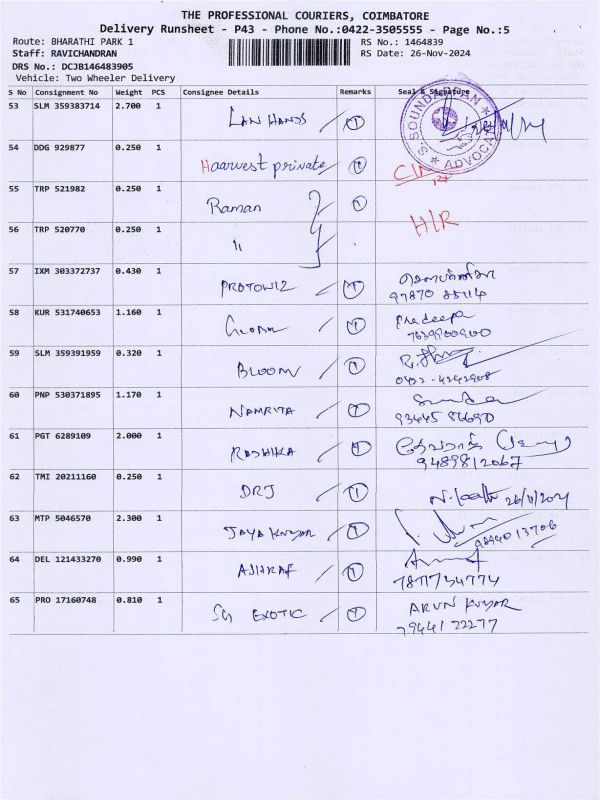 THE PROFESSIONAL COURIERS, COIMBATORE
Delivery Runsheet - P43 - Phone No.:0422-3505555 - Page No.:5
Route: BHARATHI PARK 1 RS No.: 1464839
Staff: RAVICHANDRAN RS Date: 26-Nov-2024
DRS No.: DCJB146483905
Vehicle: Two Wheeler Delivery
S No Consignment No Weight PCS Consignee Details Remarks Seal & Signature
53 SLM 359383714 2.700 1 LAN HANDS
S. SOUNDAR ADVOCATE
54 DDG 929877 0.250 1 Haarwest private
55 TRP 521982 0.250 1 Raman
H/R
56 TRP 520770 0.250 1 "
57 IXM 303372737 0.430 1 PROTOWIZ
97870 85114
58 KUR 531740653 1.160 1 Pradeepa
7639900900
59 SLM 359391959 0.320 1 BLOOM
0422-4242908
60 PNP 530371895 1.170 1 NAMRITA
93445 86690
61 PGT 6289109 2.000 1 RADHIKA
9489812067
62 TMI 20211160 0.250 1 DRJ 26/11/2024
63 MTP 5046570 2.300 1 JAYA KUMAR
9894013706
64 DEL 121433270 0.990 1 ASHRAF
7871734774
65 PRO 17160748 0.810 1 SG EXOTIC ARUN KUMAR
79441 22277